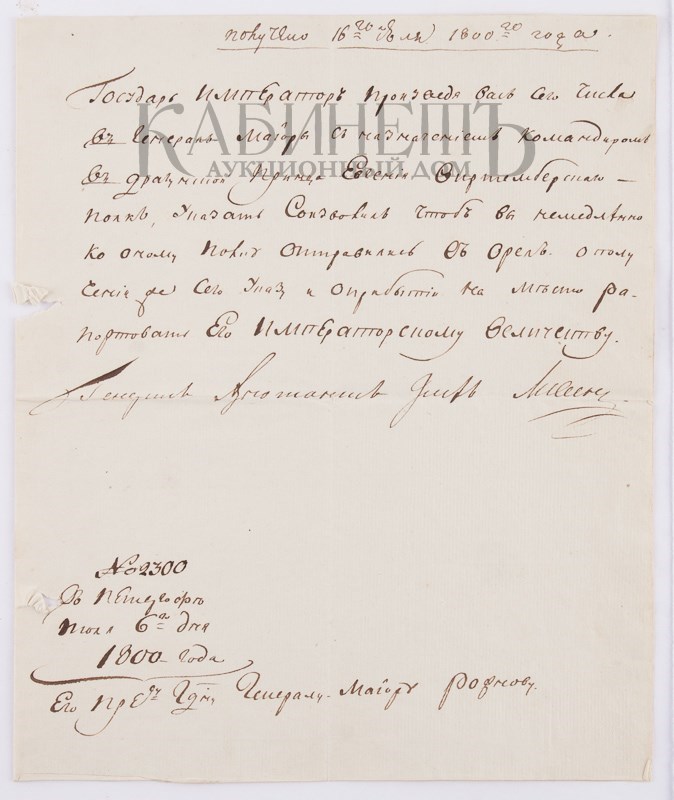 получено 16го июля 1800го года.
Государь Императоръ произведя васъ сего числа
КАБИНЕТЪ
въ Генералъ Маiоры съ назначенiемъ командиромъ
АУКЦИОННЫЙ ДОМ
въ драгунской Принца Евгенiя Виртембергскаго
полкъ, Указать Соизволилъ чтобъ вы немедленно
ко оному полку отправились въ Орелъ. О полу
ченiи же сего Указа и о прибытiи на мѣсто ра-
портовать Его Императорскому Величеству.
Генералъ Адъютантъ Графъ Ливенъ
№ 2300
въ Петергофѣ
Июля 6го дня
1800 года
Его Прев. Гдну Генералу Маiору